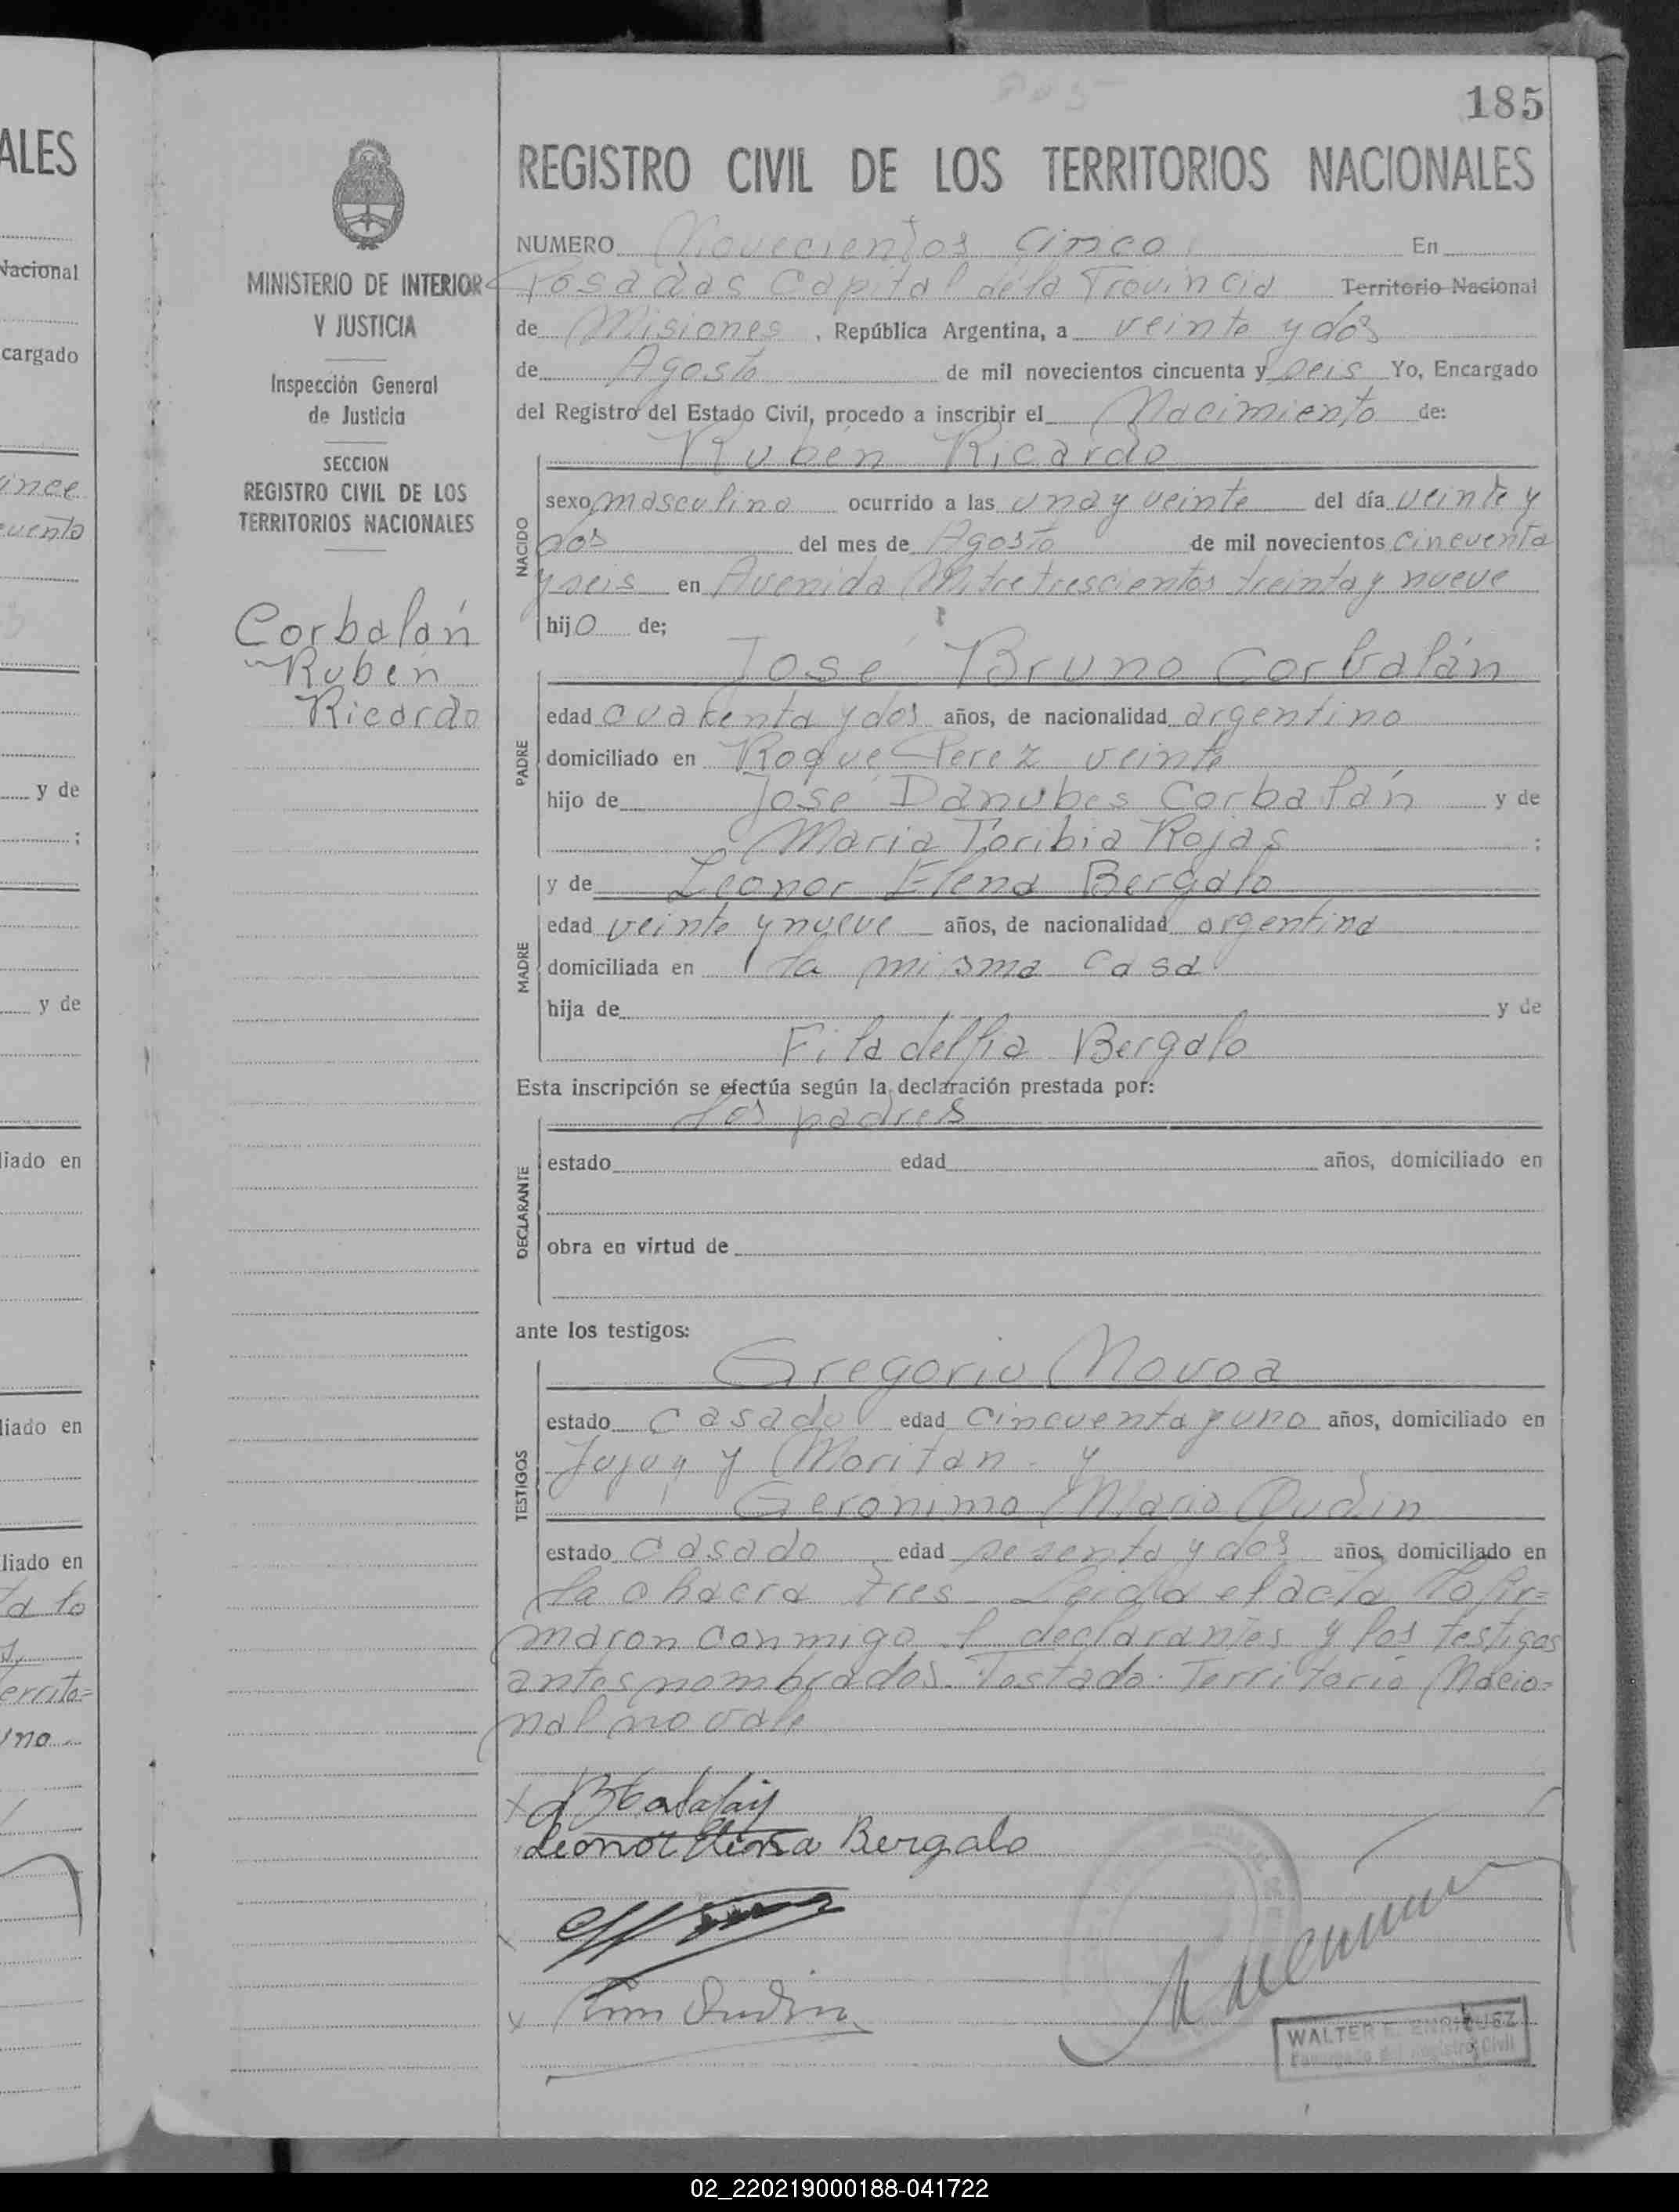 ALES
Nacional
cargado
ince
cuenta
y de
;
y de
liado en
liado en
liado en
errito=
uno
MINISTERIO DE INTERIOR
Y JUSTICIA
Inspección General
de Justicia
SECCION
REGISTRO CIVIL DE LOS
TERRITORIOS NACIONALES
Corbalán
Rubén
Ricardo
185
REGISTRO CIVIL DE LOS TERRITORIOS NACIONALES
NUMERO Novecientos cinco En
Posadas Capital de la Provincia Territorio Nacional
de Misiones, República Argentina, a veinte y dos
de Agosto de mil novecientos cincuenta y seis Yo, Encargado
del Registro del Estado Civil, procedo a inscribir el Nacimiento de:
Rubén Ricardo
NACIDO
sexo masculino ocurrido a las una y veinte del día veinte y
dos del mes de Agosto de mil novecientos cincuenta
y seis en Avenida Mitre trescientos treinta y nueve
hijo de;
José Bruno Corbalán
PADRE
edad cuarenta y dos años, de nacionalidad argentino
domiciliado en Roque Perez veinte
hijo de José Danubes Corbalán y de
Maria Toribia Rojas ;
y de Leonor Elena Bergalo
MADRE
edad veinte y nueve años, de nacionalidad argentina
domiciliada en la misma casa
hija de y de
Filadelfia Bergalo
Esta inscripción se efectúa según la declaración prestada por:
los padres
DECLARANTE
estado edad años, domiciliado en
obra en virtud de
ante los testigos:
Gregorio Novoa
TESTIGOS
estado casado edad cincuenta y uno años, domiciliado en
Jujuy y Moritan y
Geronimo Mario Oudin
estado casado edad sesenta y dos años, domiciliado en
la chacra tres Leida el acta la fir=
maron conmigo declarantes y los testigos
antes nombrados. Testado: Territorio Nacio=
nal no vale
Leonor Elena Bergalo
Oudin
WALTER E. ENRIQUEZ
Encargado del Registro Civil
02_220219000188-041722